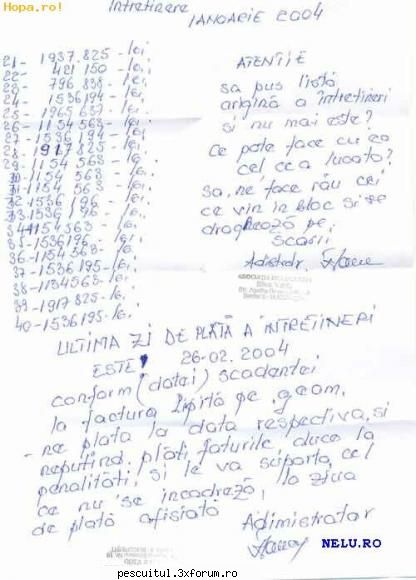 Hopa.ro!
Intreținere
IANOARIE 2004
21- 1937.825-lei
22- 421 150-lei
23- 796 838-lei
24- 1536194-lei
25- 1965 637-lei
26-1154 563-lei
27-1536 194-lei
28-1917 825-lei
29-1154 563-lei
30-1154 563-lei
31-1154 563-lei
32-1536 196-lei
33-1536 196-lei
34-1154563-lei
35-1536196-lei
36-1154 563-lei
37-1536195-lei
38-1154563-lei
39-1917 825-lei
40-1536195-lei
ATENȚIE
sa pus listă
arigină a întrețineri
și nu mai este?
ce poate face cu ea
cel ce a luoato?
sa, ne face rău cei
ce vin in bloc și se
droghează pe,
scării,
Adistrdr.
ULTIMA ZI DE PLATĂ A INTREȚINERI
ESTE 26-02.2004
conform (datei) scadantei
la factura lipită pe geam,
ne plata la data respectiva, si
neputind, plăti faturile, duce la
penalități, și le va suporta, cel
ce nu se incadreză, la ziua
de plată afisiată
Adimistrator
NELU.RO
pescuitul.3xforum.ro